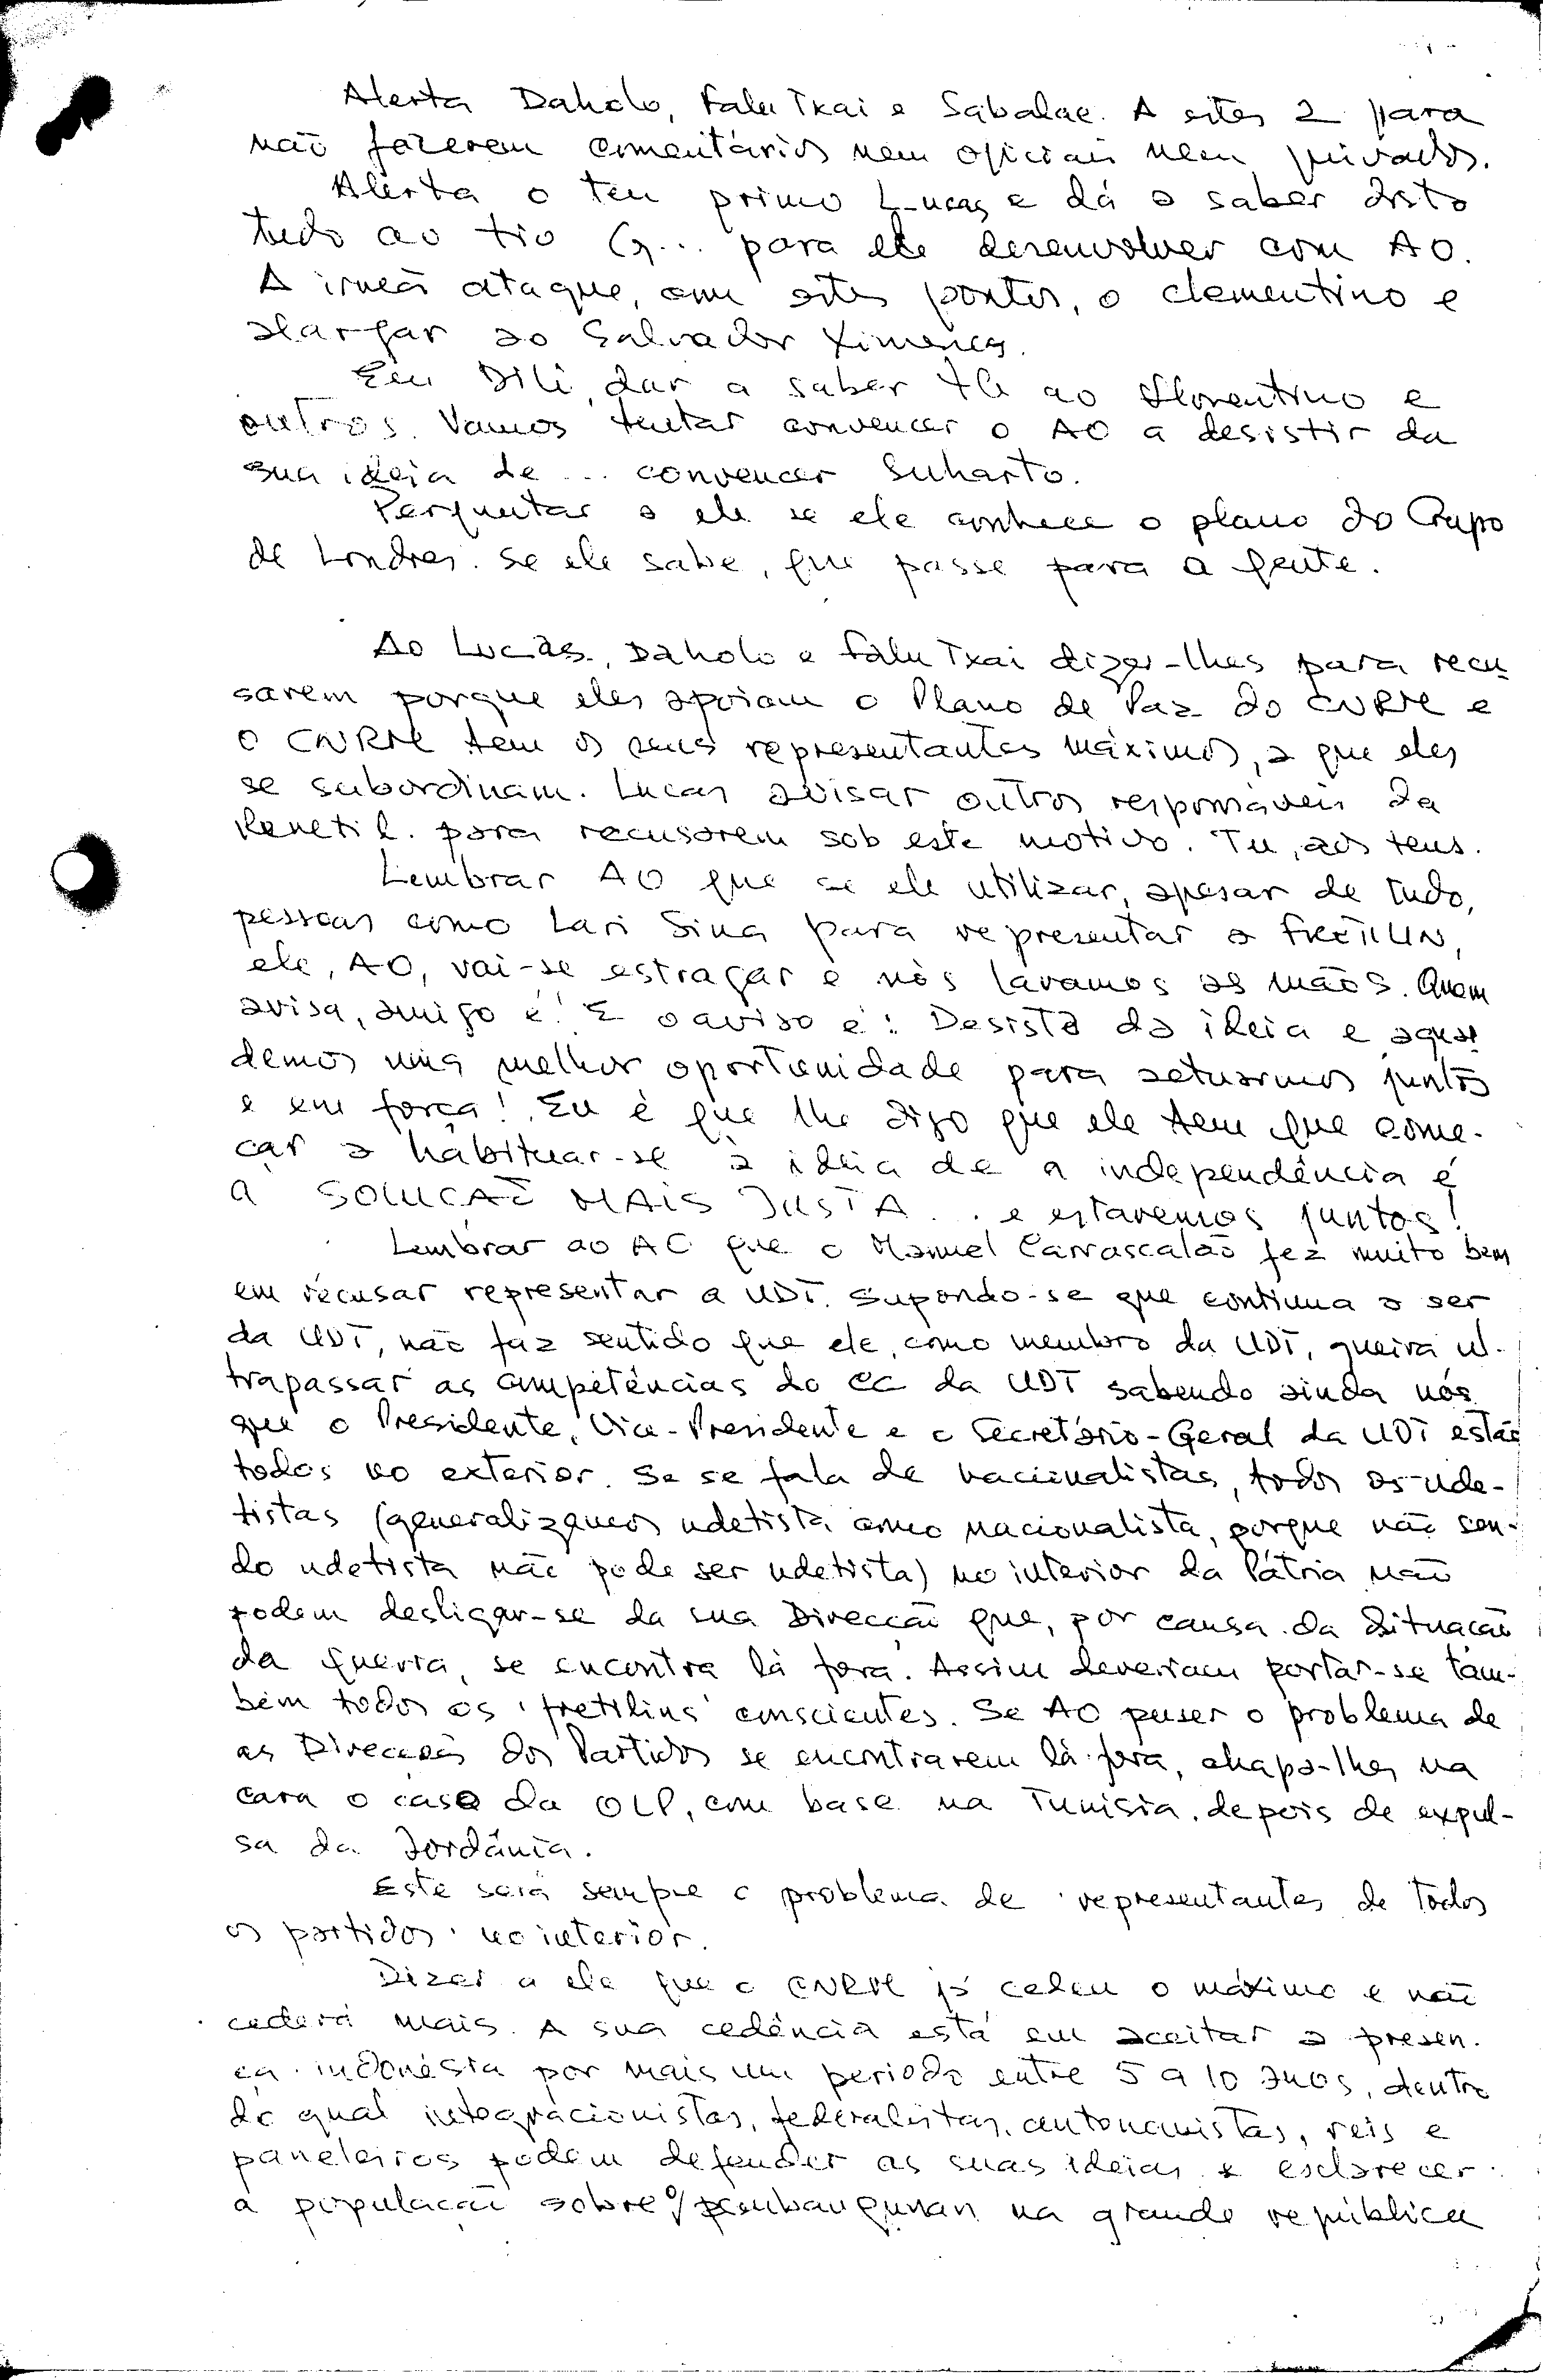 Alerta Daholo, Falu Txai e Sabalae. A estes 2 para
não fazerem comentários nem oficiais nem privados.
Alerta o teu primo Lucas e dá a saber disto
tudo ao tio G... para ele desenvolver com AO.
A irmã ataque, com estes pontos, o Clementino e
alargar ao Salvador Ximenes.
Em Dili, dar a saber tb ao Florentino e
outros. Vamos tentar convencer o AO a desistir da
sua ideia de ... convencer Suharto.
Perguntar a ele se ele conhece o plano do Grupo
de Londres. Se ele sabe, que passe para a gente.
Ao Lucas, Daholo e Falu Txai dizer-lhes para recu
sarem porque eles apoiam o Plano de Paz do CNRM e
o CNRM tem os seus representantes máximos, a que eles
se subordinam. Lucas avisar outros responsáveis da
Renetil. para recusarem sob este motivo. Tu, aos teus.
Lembrar AO que se ele utilizar, apesar de tudo,
pessoas como Lari Sina para representar a FRETILIN,
ele, AO, vai-se estragar e nós lavamos as mãos. Quem
avisa, amigo é! E o aviso é: Desista da ideia e aguar
demos uma melhor oportunidade para actuarmos juntos
e em força! Eu é que lhe digo que ele tem que come-
çar a habituar-se à ideia de a independência é
a SOLUCAÕ MAIS JUSTA ... e estaremos juntos!
Lembrar ao AO que o Manuel Carrascalão fez muito bem
em recusar representar a UDT. Supondo-se que continua a ser
da UDT, não faz sentido que ele, como membro da UDT, queira ul-
trapassar as competências do CC da UDT sabendo ainda nós
que o Presidente, Vice-Presidente e o Secretário-Geral da UDT estão
todos no exterior. Se se fala de nacionalistas, todos os ude-
tistas (generalizamos udetista como nacionalista, porque não sen-
do udetista não pode ser udetista) no interior da Pátria não
podem desligar-se da sua Direcção que, por causa da situação
da guerra, se encontra lá fora. Assim deveriam portar-se tam-
bém todos os 'fretilins' conscientes. Se AO puser o problema de
as Direcções dos Partidos se encontrarem lá fora, chapa-lhes na
cara o caso da OLP, com base na Tunísia, depois de expul-
sa da Jordânia.
Este será sempre o problema de representantes de todos
os partidos no interior.
Dizer a ele que o CNRM já cedeu o máximo e não
cederá mais. A sua cedência está em aceitar a presen-
ça indonésia por mais um período entre 5 a 10 anos, dentro
do qual integracionistas, federalistas, autonomistas, reis e
paneleiros podem defender as suas ideias e esclarecer
a população sobre o pembangunan na grande república